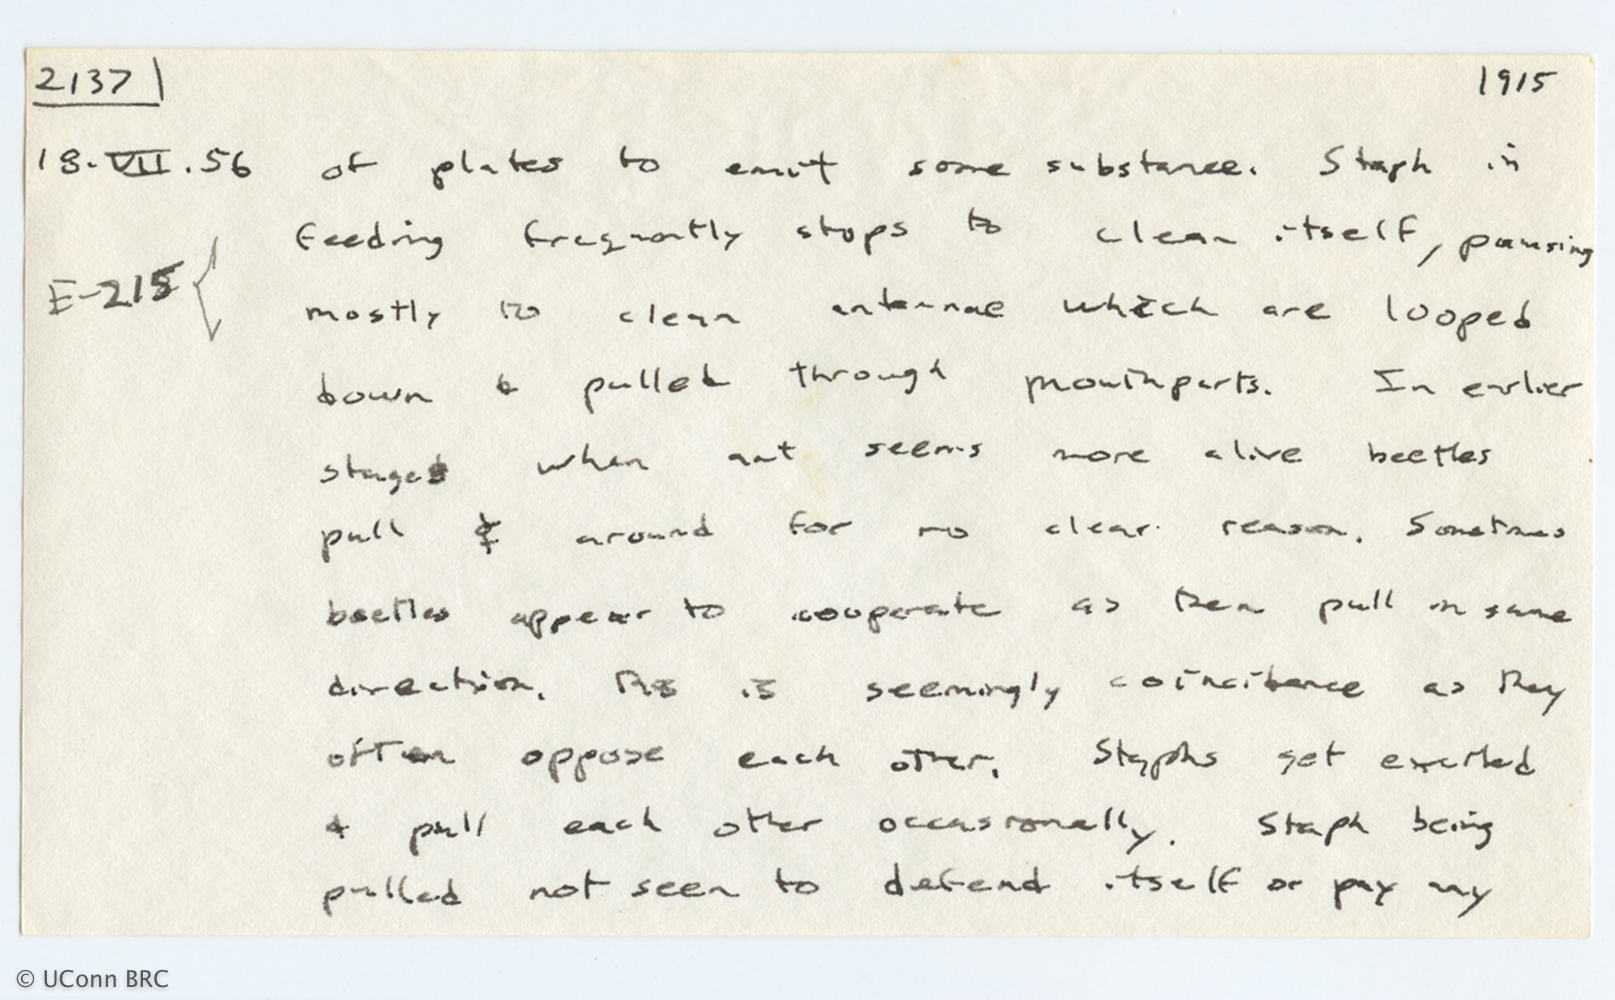 2137 1915
18.VII.56 of plates to emit some substance. Staph in
feeding frequently stops to clean itself, pausing
E-215 { mostly to clean antennae which are looped
down & pulled through mouthparts. In earlier
stages when ant seems more alive beetles
pull & around for no clear reason. Sometimes
beetles appear to cooperate as then pull in same
direction. This is seemingly coincidence as they
often oppose each other. Staphs get excited
& pull each other occasionally. Staph being
pulled not seen to defend itself or pay any
© UConn BRC